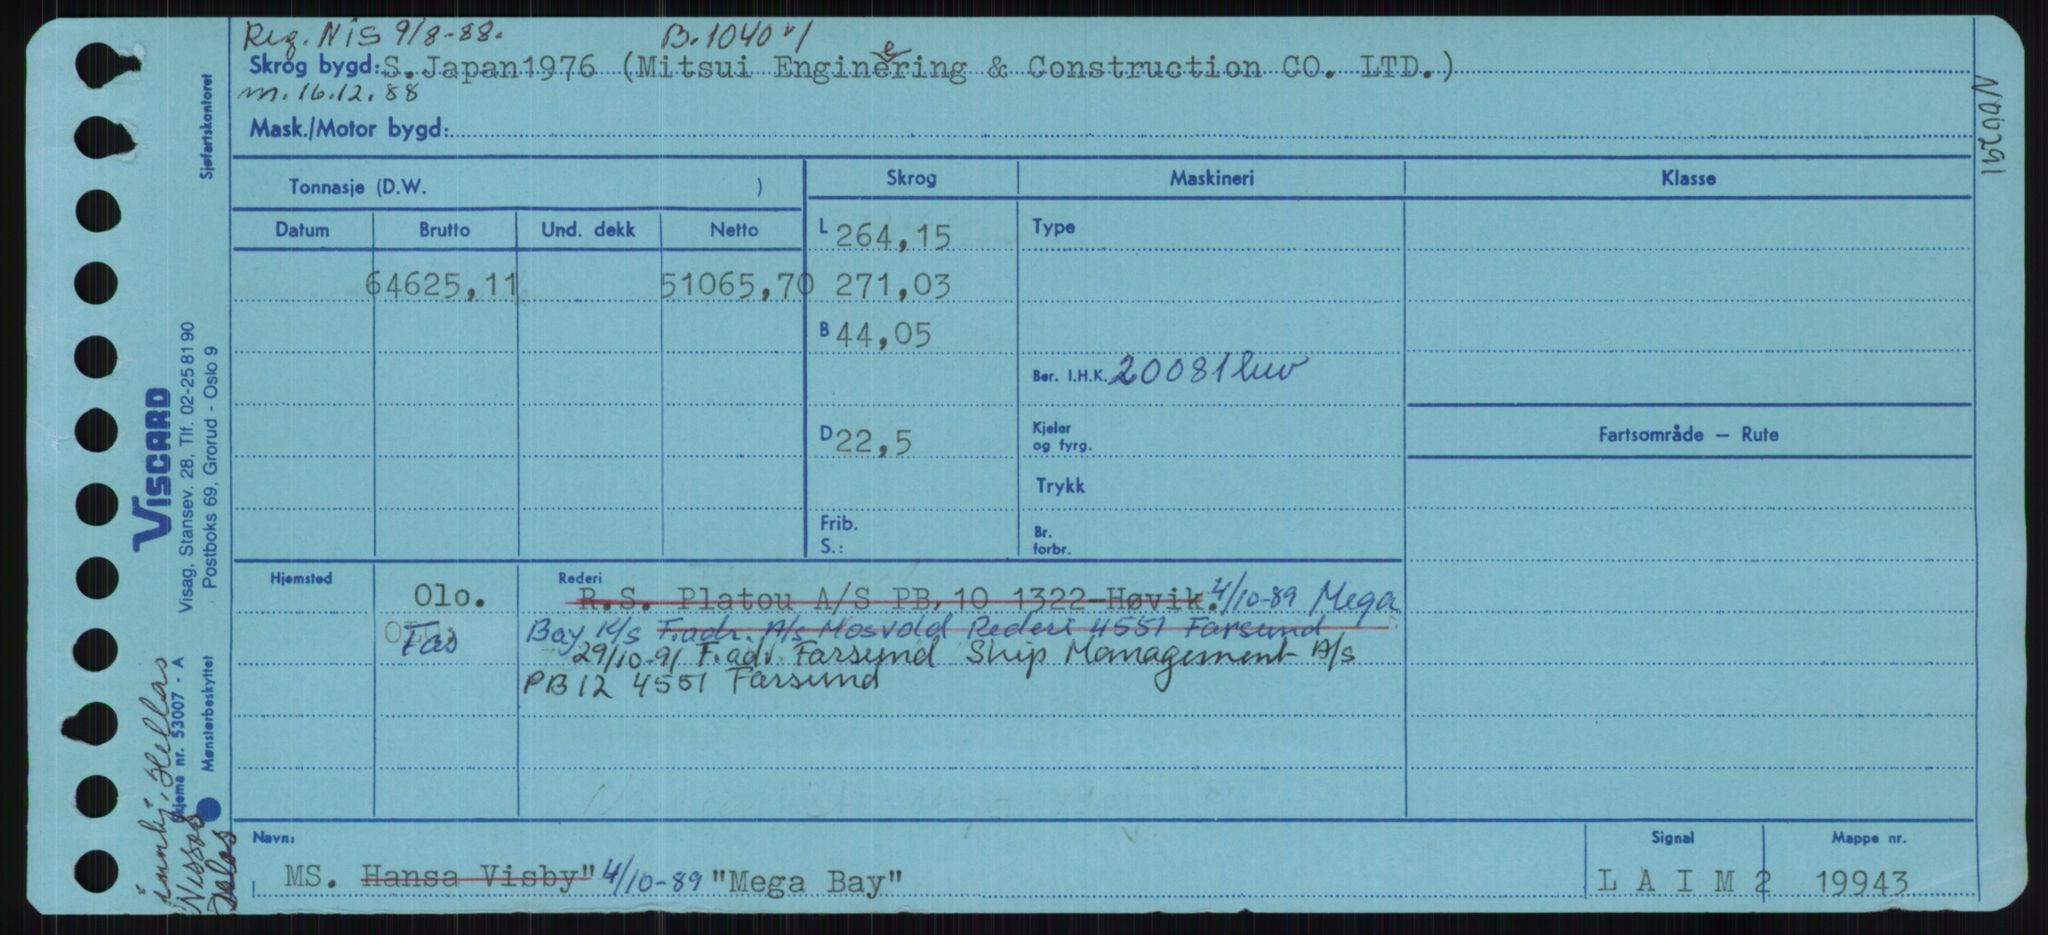 Reg. NIS 9/8-88. B.1040
Skrog bygd: S.Japan1976 (Mitsui Engineering & Construction CO. LTD.)
m. 16.12.88
Mask./Motor bygd:
Tonnasje (D.W. )
Skrog Maskineri Klasse
Datum Brutto Und. dekk Netto
L 264,15 Type
64625,11 51065,70 271,03
B 44,05
Ber. I.H.K. 20081
D 22,5 Kjeler
og fyrg.
Fartsområde – Rute
Trykk
Frib.
S.: Br.
forbr.
Hjemsted Rederi
Olo. R.S. Platou A/S PB,10 1322-Høvik. 4/10-89 Mega
Fas Bay K/s F.adr. A/s Mosvold Rederi 4551 Farsund
29/10-91 F.adr. Farsund Ship Management A/s
PB 12 4551 Farsund
Navn: Signal Mappe nr.
MS. Hansa Visby" 4/10-89 "Mega Bay" L A I M 2 19943
Sjøfartskontoret
VISCARD
Visag, Stansev. 28, Tlf. 02-25 81 90
Postboks 69, Grorud - Oslo 9
Skjema nr. 53007 - A
Mønsterbeskyttet
innkj. Hellas
Nissos
Delos
N00291